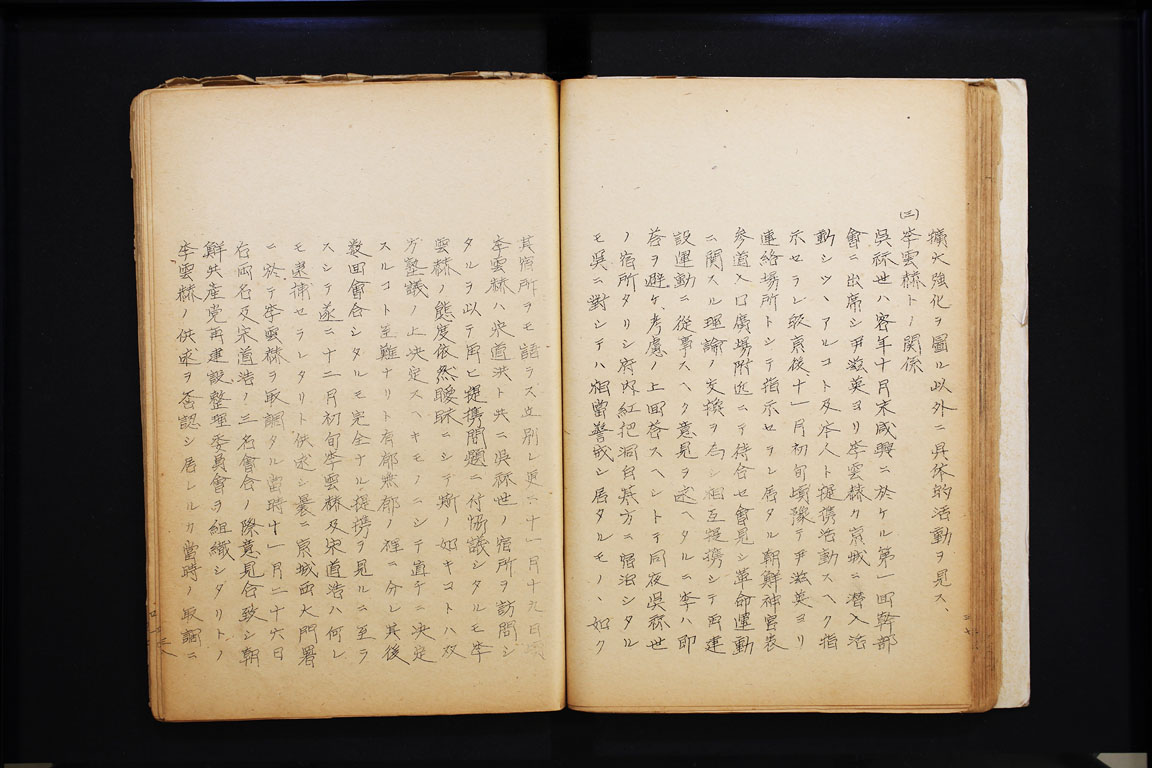 擴大強化ヲ圖ル以外ニ具体的活動ヲ見ス、
(三) 李雲赫トノ関係
呉祘世ハ客年十月末咸興ニ於ケル第一回幹部
會ニ出席シ尹滋英ヨリ李雲赫カ京城ニ潜入活
動シツヽアルコト及本人ト提携活動スヘク指
示セラレ皈京後十一月初旬頃豫テ尹滋英ヨリ
連絡場所トシテ指示セラレ居タル朝鮮神宮表
参道入口廣場附近ニテ待合セ會見シ革命運動
ニ関スル理論ノ交換ヲ為シ相互提携シテ再建
設運動ニ從事スヘク意見ヲ述ヘタルニ李ハ即
答ヲ避ケ、考慮ノ上回答スヘシトテ同夜呉祘世
ノ宿所タリシ府内紅把洞白 方ニ宿泊シタル
モ呉ニ對シテハ相當警戒シ居タルモノヽ如ク
其宿所ヲモ語ラス立別レ更ニ十一月十九日頃
李雲赫ハ宋道洪ト共ニ呉祘世ノ宿所ヲ訪問シ
タルヲ以テ再ヒ提携問題ニ付協議シタルモ李
雲赫ノ態度依然曖昧ニシテ斯ノ如キコトハ双
方塾議ノ上決定スヘキモノニシテ直チニ決定
スルコト至難ナリト有耶無耶ノ裡ニ分レ其後
数回會合シタルモ完全ナル提携ヲ見ルニ至ラ
スシテ遂ニ十二月初旬李雲赫及宋道浩ハ何レ
モ逮捕セラレタリト供述シ曩ニ京城西大門署
ニ於テ李雲赫ヲ取調タル當時十一月二十六日
右両名及宋道浩ノ三名會合ノ際意見合致シ朝
鮮共産党再建設整理委員會ヲ組織シタリトノ
李雲赫ノ供述ヲ否認シ居レルカ當時ノ取調ニ